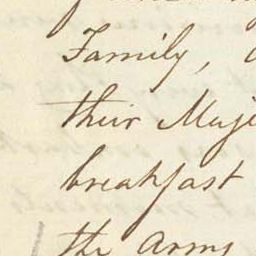 Family,
their Maje
breakfast
the Arms